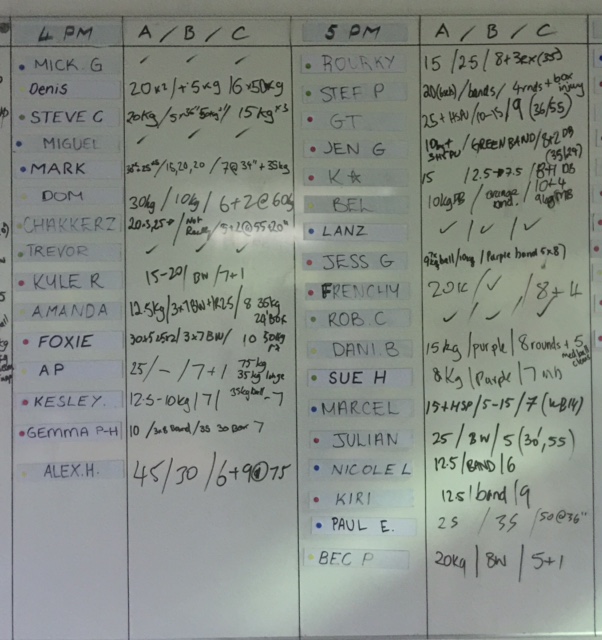 4 PM A / B / C
MICK. G ✓ ✓ ✓
Denis 20x2/+5kg/6x50kg
STEVE C 20kg/ 15kg x3
MIGUEL ✓ ✓ ✓
MARK /15,20,20/7@34"+35kg
DOM 30kg/10kg/6+2@60kg
CHAKKERZ /Not Really/5+2@55+20"
TREVOR ✓ ✓ ✓
KYLE R 15-20/BW/7+1
AMANDA 12.5kg/3x7BW+1x25/8 35kg
24"BOX
FOXIE /3x7BW/ 10 30kg
AP 25/-/7+1 75kg
35kg lunge
KESLEY. 12.5-10kg/7/ -7
GEMMA P-H 10/3x8 Band/35 30 Box 7
ALEX.H. 45/30/6+9@75
5 PM A / B / C
ROURKY 15/25/8+ (35)
STEF P /bands/4rnds+box
injury
GT 25+HSPU/10-15/9 (36/55)
JEN G 10kg+ /GREEN BAND/8+2 DB
K☆ 15 /2.5→7.5 /8+1 DB
BEL 10kg DB / orange band. / 10+4
LANZ ✓ / ✓ / ✓
JESS G ball/10kg/Purple band 5x8)
FRENCHY 20k / ✓ / 8+4
ROB.C ✓ / ✓ / ✓
DANI.B 15kg/purple/8 rounds+5
med ball
clean
SUE H 8kg/Purple/7
MARCEL 15+HSP/5-15/7
JULIAN 25/BW/5(30',55)
NICOLE L 12.5/BAND/6
KIRI 12.5/band/9
PAUL E. 25 / 35 /50@36"
BEC P 20kg/BW/5+1